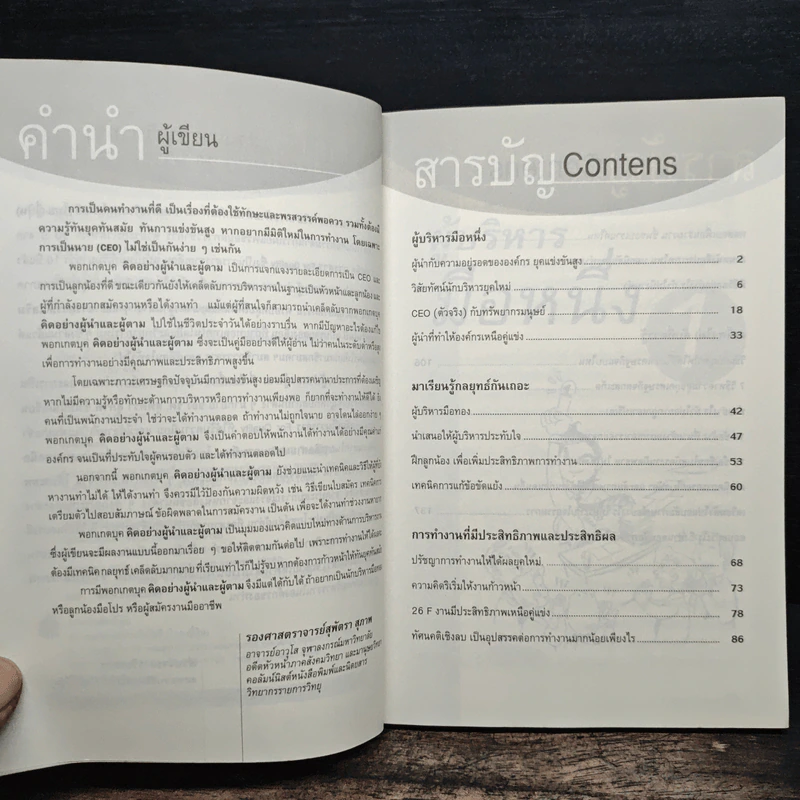 คำนำ ผู้เขียน
การเป็นคนทำงานที่ดี เป็นเรื่องที่ต้องใช้ทักษะและพรสวรรค์พอควร รวมทั้งต้องมี
ความรู้ทันยุคทันสมัย ทันการแข่งขันสูง หากอยากมีมิติใหม่ในการทำงาน โดยเฉพาะ
การเป็นนาย (CEO) ไม่ใช่เป็นกันง่าย ๆ เช่นกัน
พอกเกตบุค คิดอย่างผู้นำและผู้ตาม เป็นการแจกแจงรายละเอียดการเป็น CEO และ
การเป็นลูกน้องที่ดี ขณะเดียวกันยังให้เคล็ดลับการบริหารงานในฐานะเป็นหัวหน้าและลูกน้อง
ผู้ที่กำลังอยากสมัครงานหรือได้งานทำ แม้แต่ผู้ที่สนใจก็สามารถนำเคล็ดลับจากพอกเกตบุค
คิดอย่างผู้นำและผู้ตาม ไปใช้ในชีวิตประจำวันได้อย่างราบรื่น หากมีปัญหาอะไรต้องแก้ไข
พอกเกตบุค คิดอย่างผู้นำและผู้ตาม ซึ่งจะเป็นคู่มืออย่างดีให้ผู้อ่าน ไม่ว่าคนในระดับต่ำหรือสูง
เพื่อการทำงานอย่างมีคุณภาพและประสิทธิภาพสูงขึ้น
โดยเฉพาะภาวะเศรษฐกิจปัจจุบันมีการแข่งขันสูง ย่อมมีอุปสรรคนานาประการที่ต้องเผชิญ
หากไม่มีความรู้หรือทักษะด้านการบริหารหรือการทำงานเพียงพอ ก็ยากที่จะทำงานให้ดีได้
คนที่เป็นพนักงานประจำ ใช่ว่าจะได้ทำงานตลอด ถ้าทำงานไม่ถูกใจนาย อาจโดนไล่ออกง่าย ๆ
พอกเกตบุค คิดอย่างผู้นำและผู้ตาม จึงเป็นคำตอบให้พนักงานได้ทำงานได้อย่างมีคุณค่า
องค์กร จนเป็นที่ประทับใจผู้คนรอบตัว และได้ทำงานตลอดไป
นอกจากนี้ พอกเกตบุค คิดอย่างผู้นำและผู้ตาม ยังช่วยแนะนำเทคนิคและวิธีให้ผู้ที่
หางานทำไม่ได้ ให้ได้งานทำ จึงควรมีไว้ป้องกันความผิดหวัง เช่น วิธีเขียนใบสมัคร เทคนิคการ
เตรียมตัวไปสอบสัมภาษณ์ ข้อผิดพลาดในการสมัครงาน เป็นต้น เพื่อจะได้ทำงานช่วงงานหายาก
พอกเกตบุค คิดอย่างผู้นำและผู้ตาม เป็นมุมมองแนวคิดแบบใหม่ทางด้านการบริหารงาน
ซึ่งผู้เขียนจะมีผลงานแบบนี้ออกมาเรื่อย ๆ ขอให้ติดตามกันต่อไป เพราะการทำงานให้ได้ผล
ต้องมีเทคนิค กลยุทธ์ เคล็ดลับมากมาย ที่เรียนเท่าไรก็ไม่รู้จบ หากต้องการก้าวหน้าให้ทันยุคทันสมัย
การมีพอกเกตบุค คิดอย่างผู้นำและผู้ตาม จึงมีแต่ได้กับได้ ถ้าอยากเป็นนักบริหารมือทอง
หรือลูกน้องมือโปร หรือผู้สมัครงานมืออาชีพ
รองศาสตราจารย์สุพัตรา สุภาพ
อาจารย์อาวุโส จุฬาลงกรณ์มหาวิทยาลัย
อดีตหัวหน้าภาคสังคมวิทยา และมานุษยวิทยา
คอลัมน์นิสต์หนังสือพิมพ์และนิตยสาร
วิทยากรรายการวิทยุ
สารบัญ Contens
ผู้บริหารมือหนึ่ง
ผู้นำกับความอยู่รอดขององค์กร ยุคแข่งขันสูง 2
วิสัยทัศน์นักบริหารยุคใหม่ 6
CEO (ตัวจริง) กับทรัพยากรมนุษย์ 18
ผู้นำที่ทำให้องค์กรเหนือคู่แข่ง 33
มาเรียนรู้กลยุทธ์กันเถอะ
ผู้บริหารมือทอง 42
นำเสนอให้ผู้บริหารประทับใจ 47
ฝึกลูกน้อง เพื่อเพิ่มประสิทธิภาพการทำงาน 53
เทคนิคการแก้ข้อขัดแย้ง 60
การทำงานที่มีประสิทธิภาพและประสิทธิผล
ปรัชญาการทำงานให้ได้ผลยุคใหม่ 68
ความคิดริเริ่มให้งานก้าวหน้า 73
26 F งานมีประสิทธิภาพเหนือคู่แข่ง 78
ทัศนคติเชิงลบ เป็นอุปสรรคต่อการทำงานมากน้อยเพียงไร 86